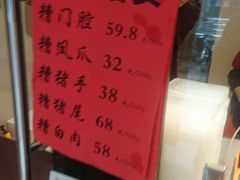 糟门腔 59.8 元/500g
糟凤爪 32 元/500g
糟猪手 38 元/500g
糟猪尾 68 元/500g
糟白肉 58 元/500g